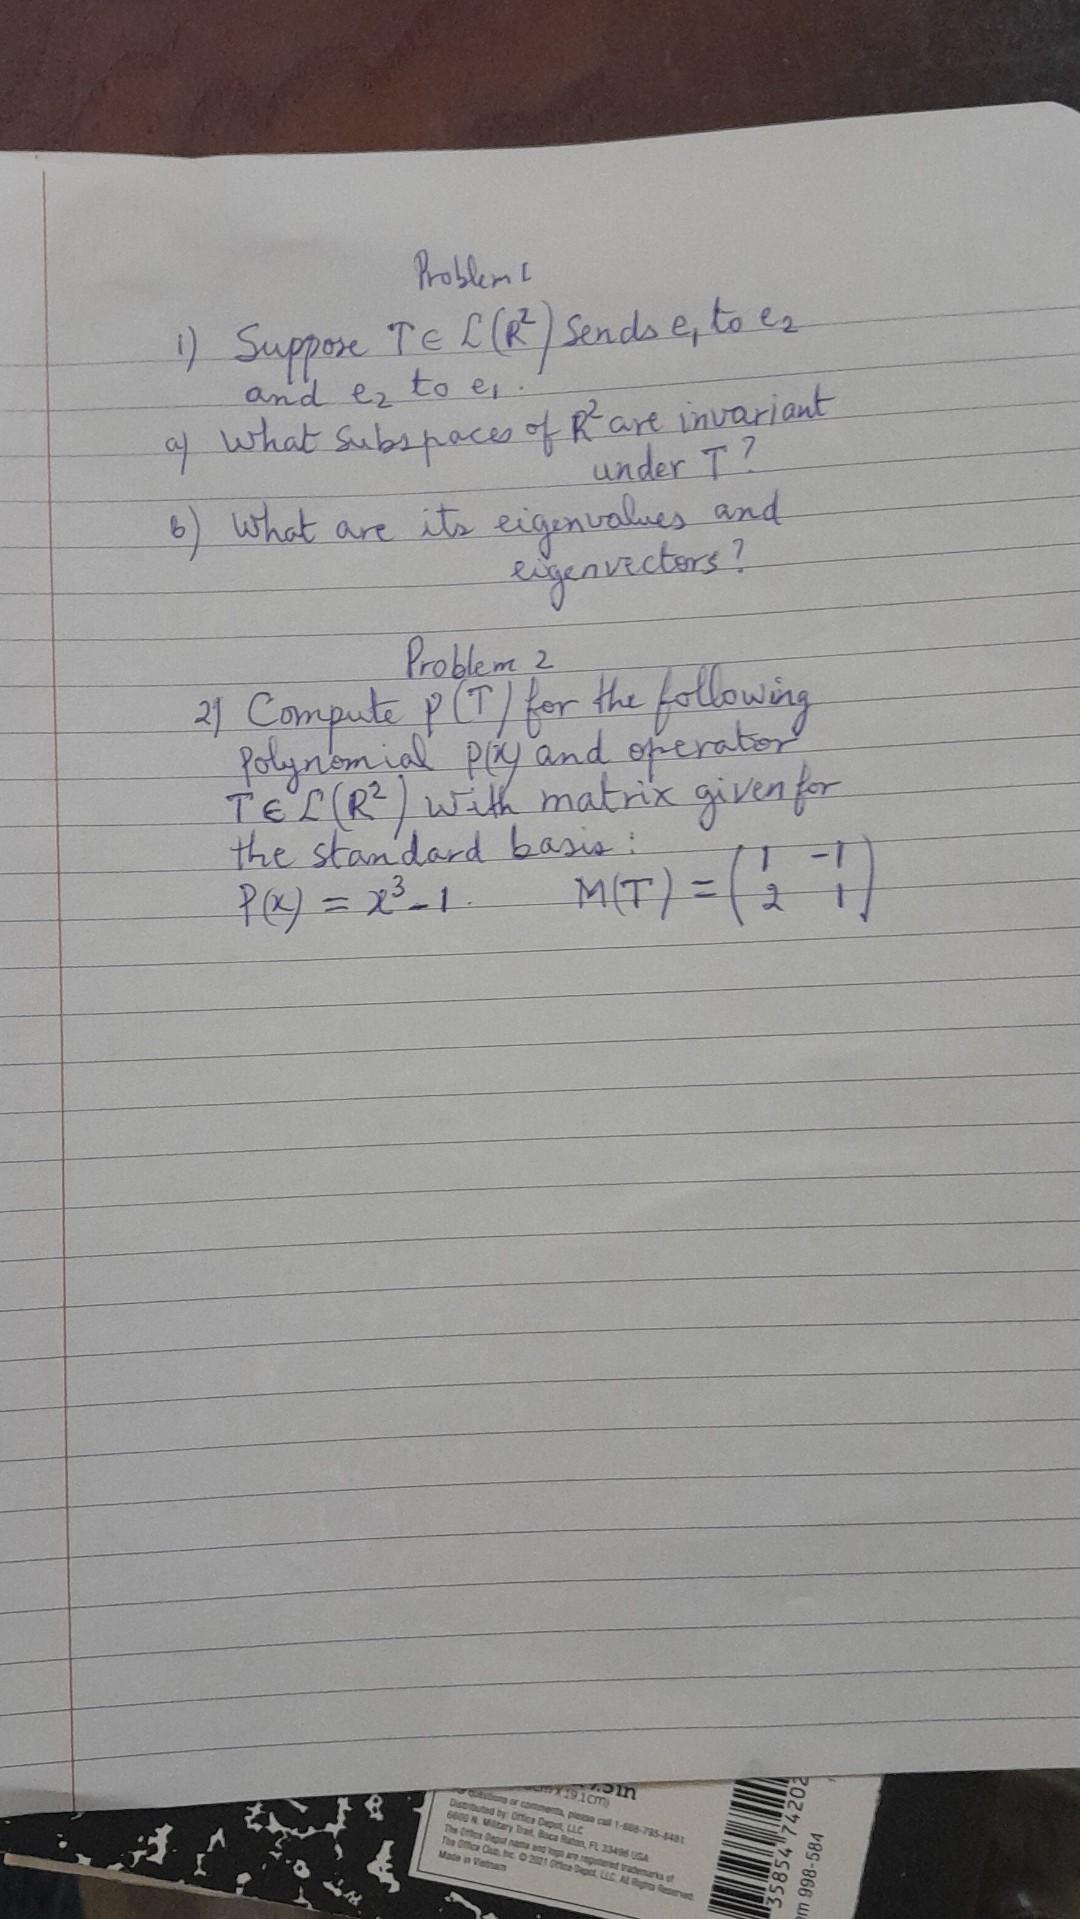 Problem 1
1) Suppose T ∈ L(R²) Sends e₁ to e₂
and e₂ to e₁.
a) What Subspaces of R² are invariant
under T?
b) What are its eigenvalues and
eigenvectors?
Problem 2
2) Compute P(T) for the following
Polynomial P(x) and operator
T ∈ L(R²) with matrix given for
the standard basis:
P(x) = x³-1. M(T) = (1 -1
2 1)
.5in
x 19.1cm)
questions or comments, please call 1-888-795-8481
Distributed by: Office Depot, LLC
6600 N. Military Trail, Boca Raton, FL 33496 USA
The Office Depot name and logo are registered trademarks of
The Office Club, Inc. © 2021 Office Depot, LLC. All Rights Reserved.
Made in Vietnam
35854 74202
m 998-584